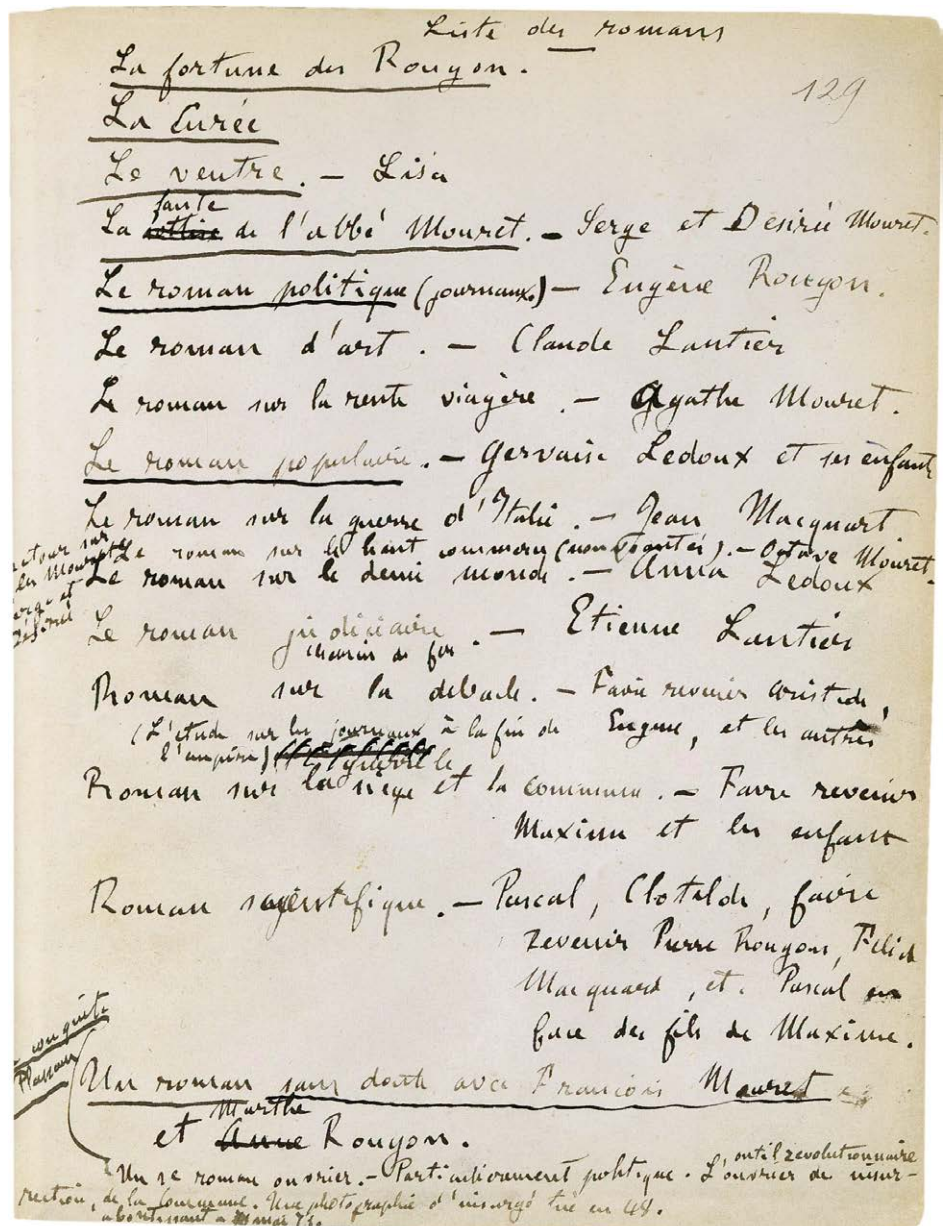 Liste des romans
129
La fortune des Rougon.
La Curée
Le ventre. – Lisa
faute
La de l'abbé Mouret. – Serge et Désirée Mouret.
Le roman politique (journaux) – Eugène Rougon.
Le roman d'art. – Claude Lantier
Le roman sur la rente viagère. – Agathe Mouret.
Le roman populaire. – Gervaise Ledoux et ses enfants
Le roman sur la guerre d'Italie. – Jean Macquart
Le roman sur le haut commerce (nouveautés). – Octave Mouret.
retour sur
les Mouret
Serge et
Désirée
Le roman sur le demi monde. – Anna Ledoux
Le roman judiciaire. – Etienne Lantier
chemin de fer
Roman sur la débacle. – Faire revenir Aristide,
(L'étude sur les journaux à la fin de Eugène, et les autres
l'empire)
la guerre le
Roman sur siège et la commune. – Faire revenir
Maxime et les enfant
Roman scientifique. – Pascal, Clotilde, faire
revenir Pierre Rougon, Félicité
Macquard, et. Pascal en
face des fils de Maxime.
conquête
Plassans
Un roman sans doute avec François Mouret
Marthe
et Anne Rougon.
outil révolutionnaire
Un 2e roman ouvrier. – Particulièrement politique. L'ouvrier de insur-
rection, de la Commune. Une photographie d'insurgé tué en 48.
aboutissant à mai 71.